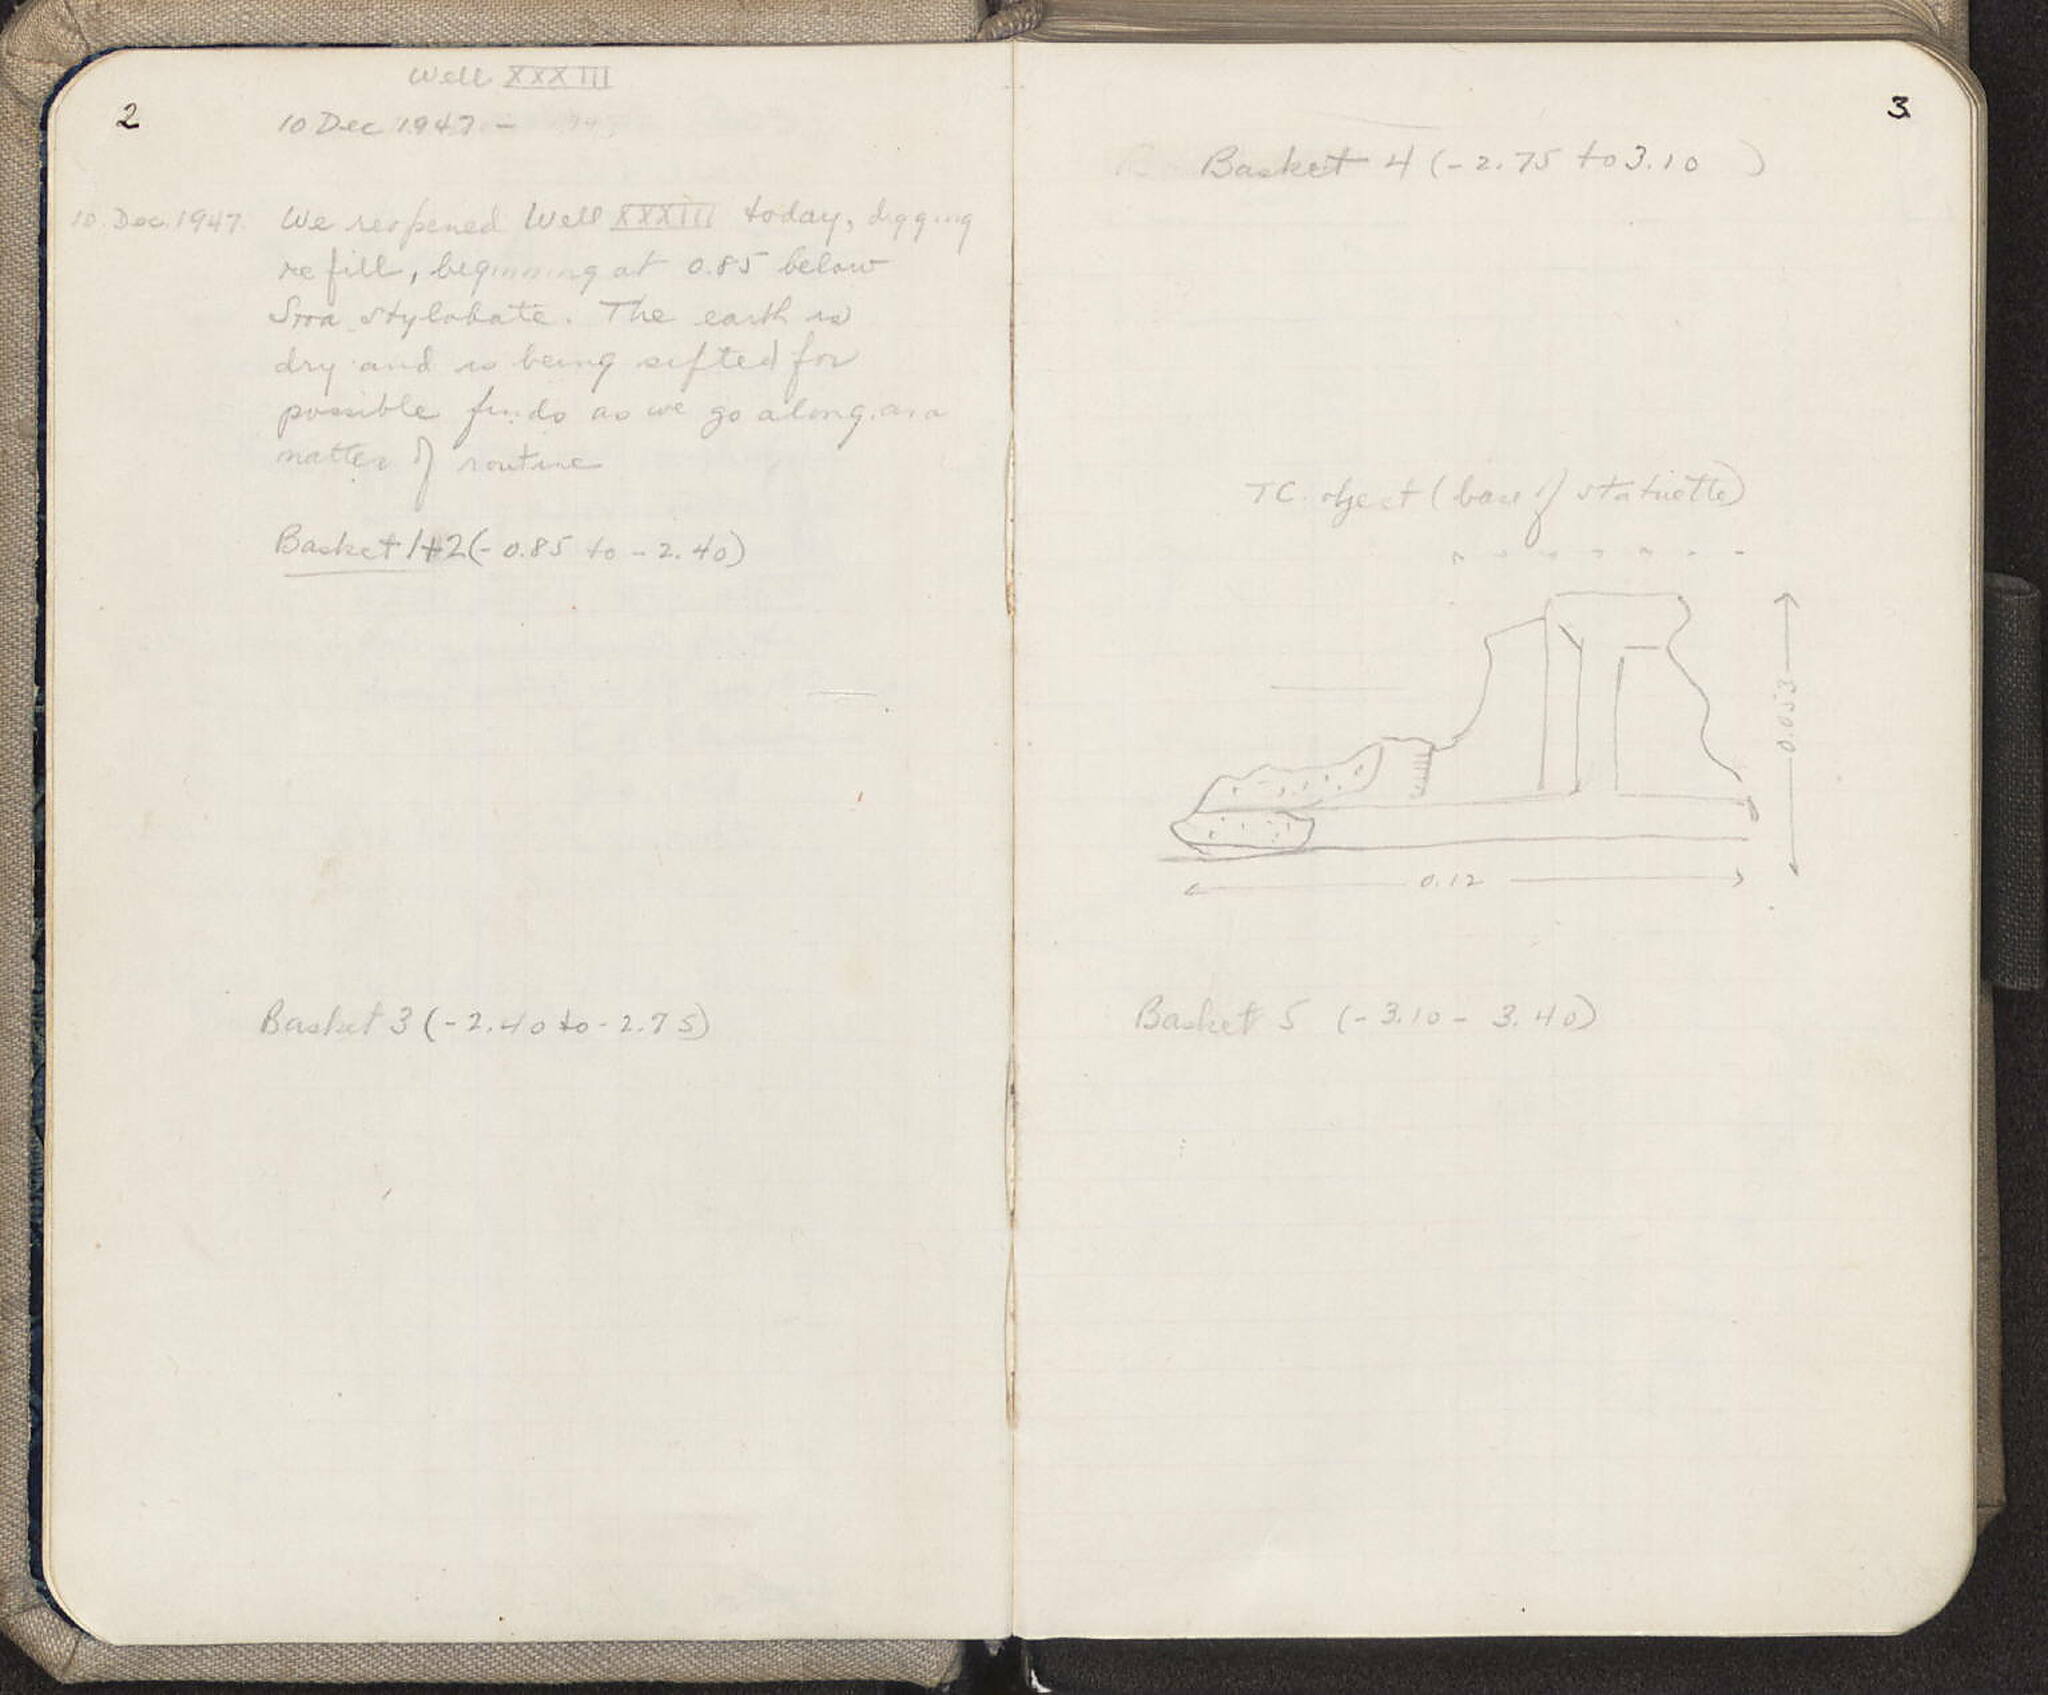 Well XXXIII
2
10 Dec 1947 -
10. Dec. 1947. We reopened Well XXXIII today, digging
refill, beginning at 0.85 below
Stoa stylobate. The earth is
dry and is being sifted for
possible finds as we go along as a
matter of routine
Basket 1+2 (- 0.85 to - 2.40)
Basket 3 (- 2.40 to - 2.75)
3
Basket 4 (- 2.75 to 3.10 )
TC. object (base of statuette)
0.053
0.12
Basket 5 (- 3.10 - 3.40)